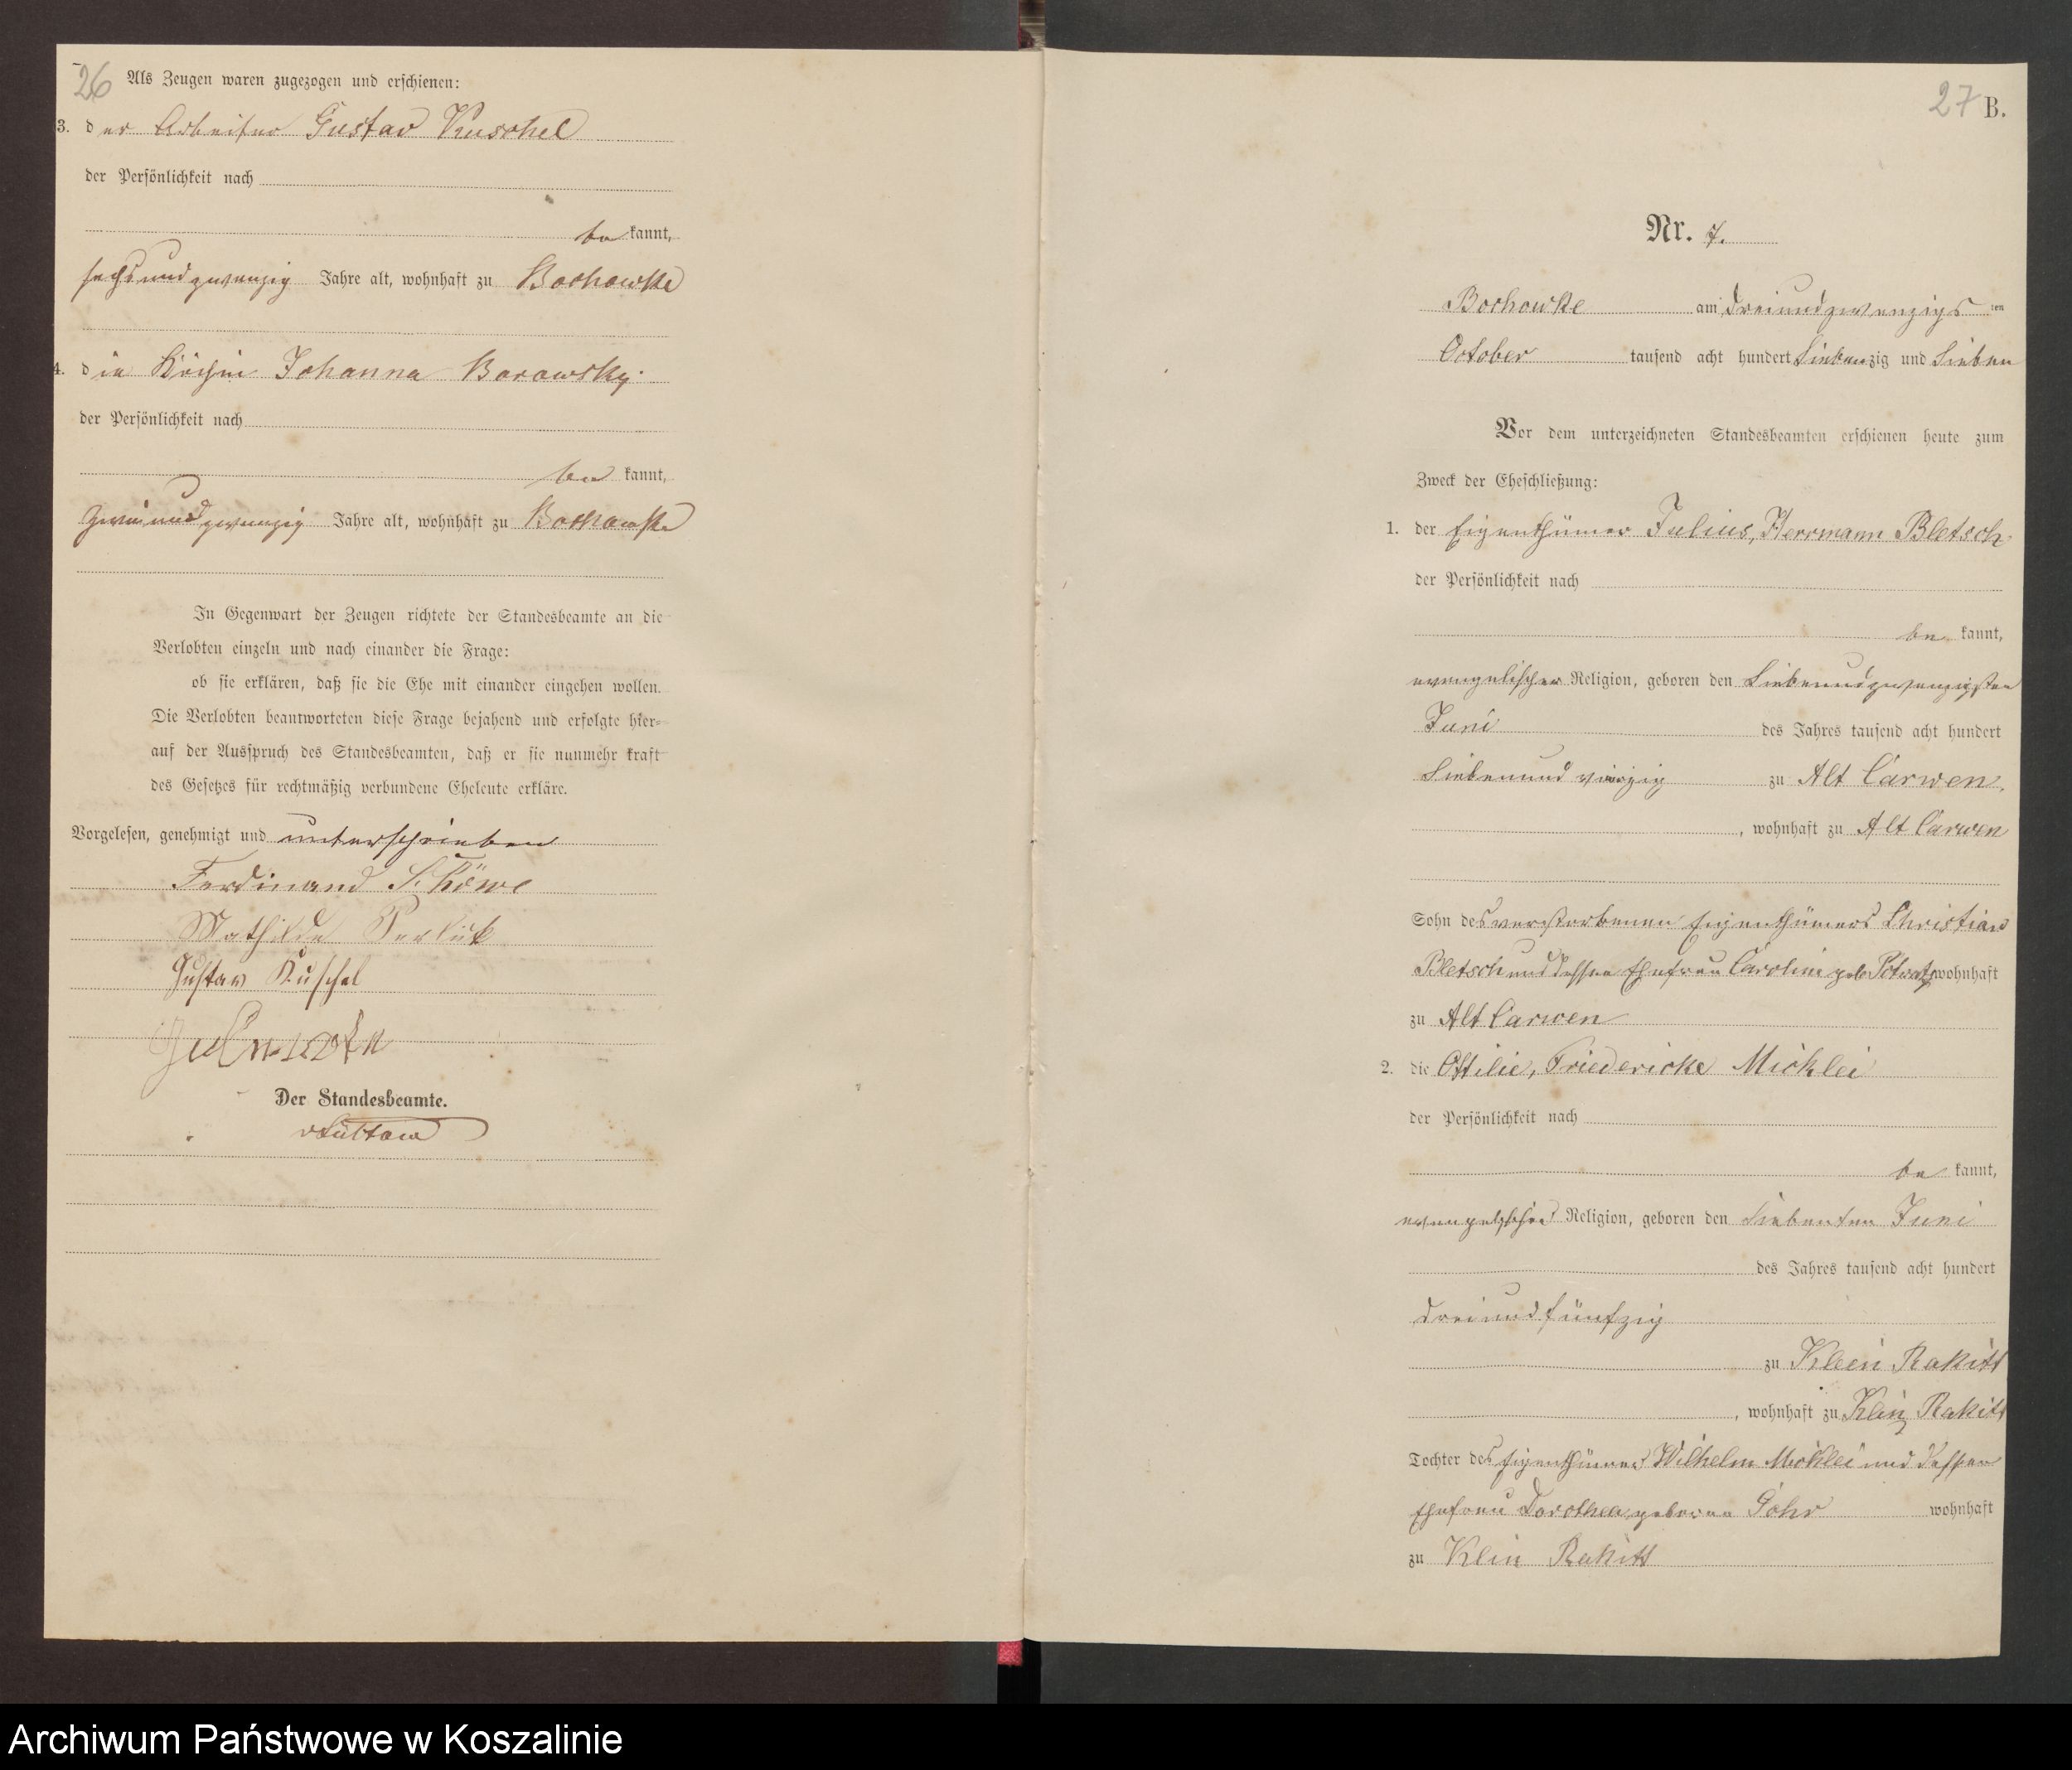 26
Als Zeugen waren zugezogen und erschienen:
3. der Arbeiter Gustav Kuschel
der Persönlichkeit nach
be kannt,
sechsundzwanzig Jahre alt, wohnhaft zu Bochowke
4. die Köchin Johanna Borowsky
der Persönlichkeit nach
be kannt,
zweiundzwanzig Jahre alt, wohnhaft zu Bochowke
In Gegenwart der Zeugen richtete der Standesbeamte an die
Verlobten einzeln und nach einander die Frage:
ob sie erklären, daß sie die Ehe mit einander eingehen wollen.
Die Verlobten beantworteten diese Frage bejahend und erfolgte hier-
auf der Ausspruch des Standesbeamten, daß er sie nunmehr kraft
des Gesetzes für rechtmäßig verbundene Eheleute erkläre.
Vorgelesen, genehmigt und unterschrieben
Ferdinand
Mathilde
Gustav Kuschel
Der Standesbeamte.
27 B.
Nr. 7.
Bochowke am dreiundzwanzigs ten
October tausend acht hundert siebenzig und sieben
Vor dem unterzeichneten Standesbeamten erschienen heute zum
Zweck der Eheschließung:
1. der Eigenthümer Julius, Herrmann Bletsch
der Persönlichkeit nach
be kannt,
evangelischer Religion, geboren den siebenundzwanzigsten
Juni des Jahres tausend acht hundert
siebenundvierzig zu Alt Carwen,
, wohnhaft zu Alt Carwen
Sohn des verstorbenen Eigenthümers Christian
Bletsch und dessen Ehefrau Caroline geb Potratz wohnhaft
zu Alt Carwen
2. die Ottilie, Friedericke Micklei
der Persönlichkeit nach
be kannt,
evangelischer Religion, geboren den siebenten Juni
des Jahres tausend acht hundert
dreiundfünfzig
zu Klein Rakitt
, wohnhaft zu Klein Rakitt
Tochter des Eigenthümers Wilhelm Micklei und dessen
Ehefrau Dorothea, geborne Gohr wohnhaft
zu Klein Rakitt
Archiwum Państwowe w Koszalinie